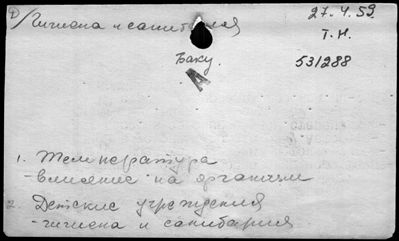 1) Гигиена и санитария
27.4.59
Т.Н.
Баку.
531288
А
1. Температура
- влияние на организм
2. Детские учреждения
- гигиена и санитария